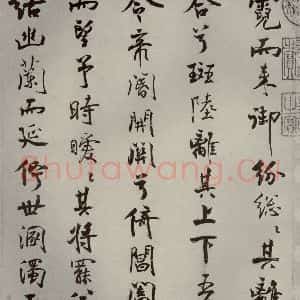 霓而来御紛総々其離
合兮斑陸離其上下吾
令帝閽開関兮倚閶闔
而望予時曖々其将罷
結幽蘭而延佇世溷濁
Shufawang.Cn